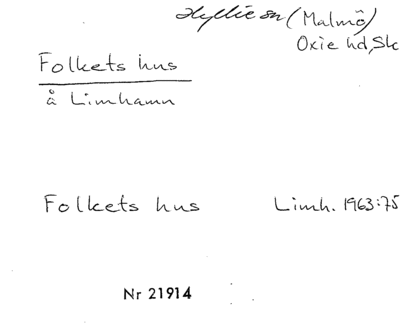 Hyllie sn (Malmö)
Oxie hd, Sk
Folkets hus
å Limhamn
Folkets hus Limh. 1963:75
Nr 21914